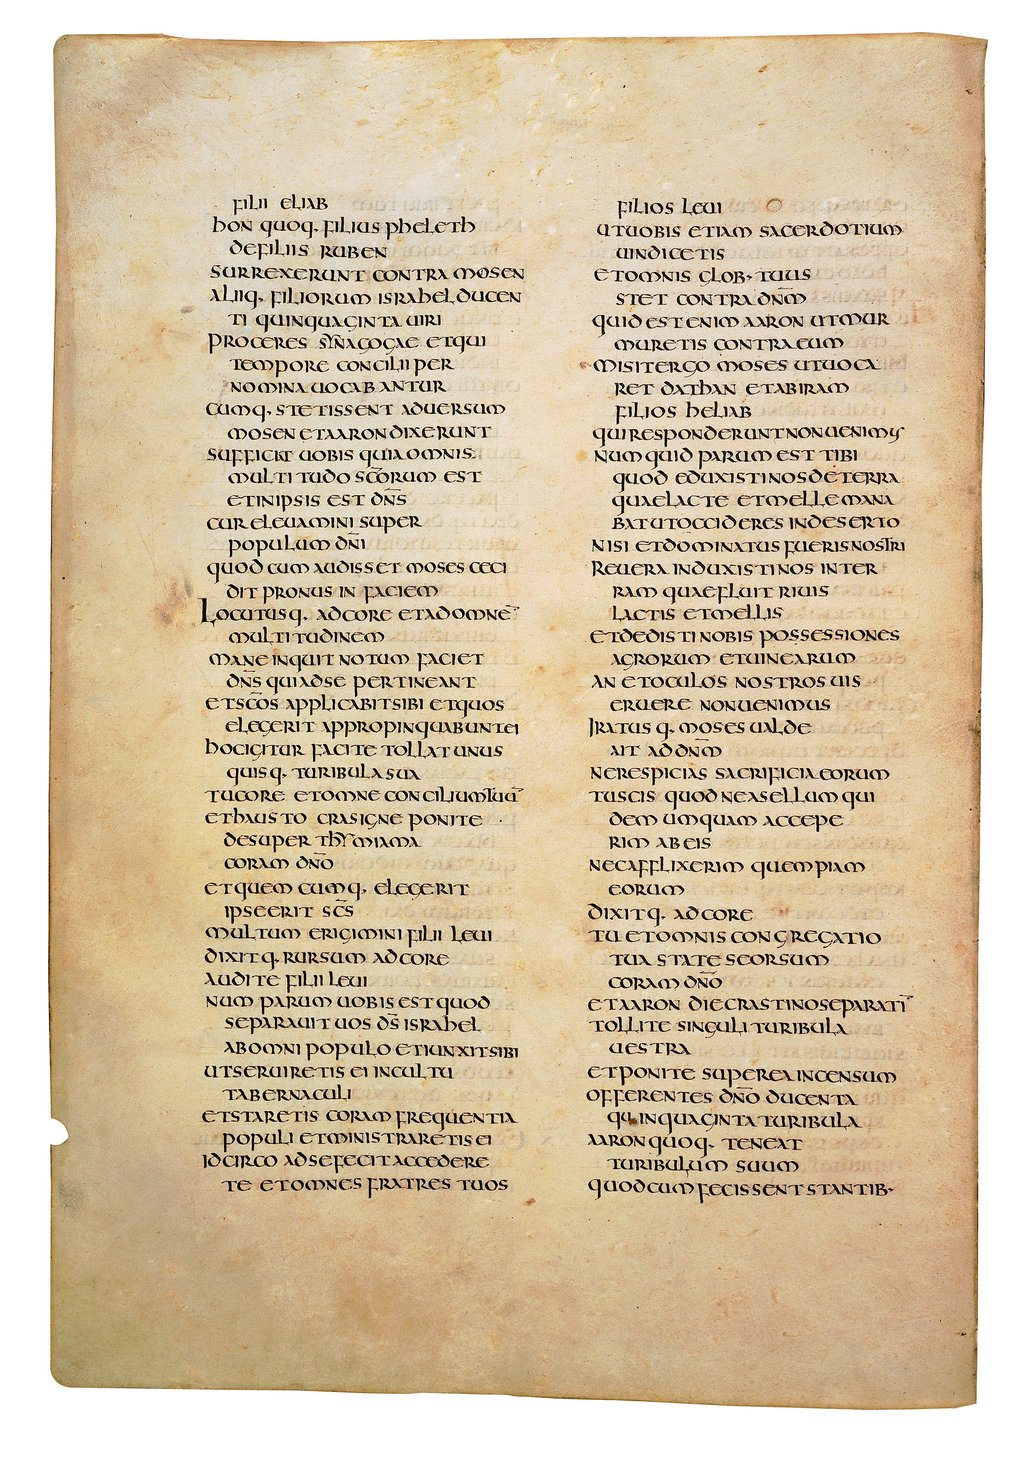 filii eliab
hon quoq· filius pheleth
de filiis ruben
surrexerunt contra mosen
aliiq· filiorum israhel ducen
ti quinquaginta uiri
proceres synagogae et qui
tempore concilii per
nomina uocabantur
cumq· stetissent aduersum
mosen et aaron dixerunt
sufficiat uobis quia omnis
multitudo sc̄orum est
et in ipsis est dn̄s
cur eleuamini super
populum dn̄i
quod cum audisset moses ceci
dit pronus in faciem
Locutusq· ad core et ad omnē
multitudinem
mane inquit notum faciet
dn̄s qui ad se pertineant
et sc̄os applicabit sibi et quos
elegerit appropinquabunt ei
hoc igitur facite tollat unus
quisq· turibula sua
tu core et omne concilium tuū
et hausto cras igne ponite
desuper thymiama
coram dn̄o
et quemcumq· elegerit
ipse erit sc̄s
multum erigimini filii leui
dixitq· rursum ad core
audite filii leui
num parum uobis est quod
separauit uos ds̄ israhel
ab omni populo et iunxit sibi
ut seruiretis ei in cultu
tabernaculi
et staretis coram frequentia
populi et ministraretis ei
idcirco ad se fecit accedere
te et omnes fratres tuos
filios leui
ut uobis etiam sacerdotium
uindicetis
et omnis glob· tuus
stet contra dn̄m
quid est enim aaron ut mur
muretis contra eum
misit ergo moses ut uoca
ret dathan et abiram
filios heliab
qui responderunt non uenimus
numquid parum est tibi
quod eduxisti nos de terra
quae lacte et melle mana
bat ut occideres in deserto
nisi et dominatus fueris nostri
reuera induxisti nos in ter
ram quae fluit riuis
lactis et mellis
et dedisti nobis possessiones
agrorum et uinearum
an et oculos nostros uis
eruere non uenimus
Iratusq· moses ualde
ait ad dn̄m
ne respicias sacrificia eorum
tu scis quod ne asellum qui
dem umquam accepe
rim ab eis
nec afflixerim quempiam
eorum
dixitq· ad core
tu et omnis congregatio
tua state seorsum
coram dn̄o
et aaron die crastino separatī
tollite singuli turibula
uestra
et ponite super ea incensum
offerentes dn̄o ducenta
quinquaginta turibula
aaron quoq· teneat
turibulum suum
quod cum fecissent stantib·